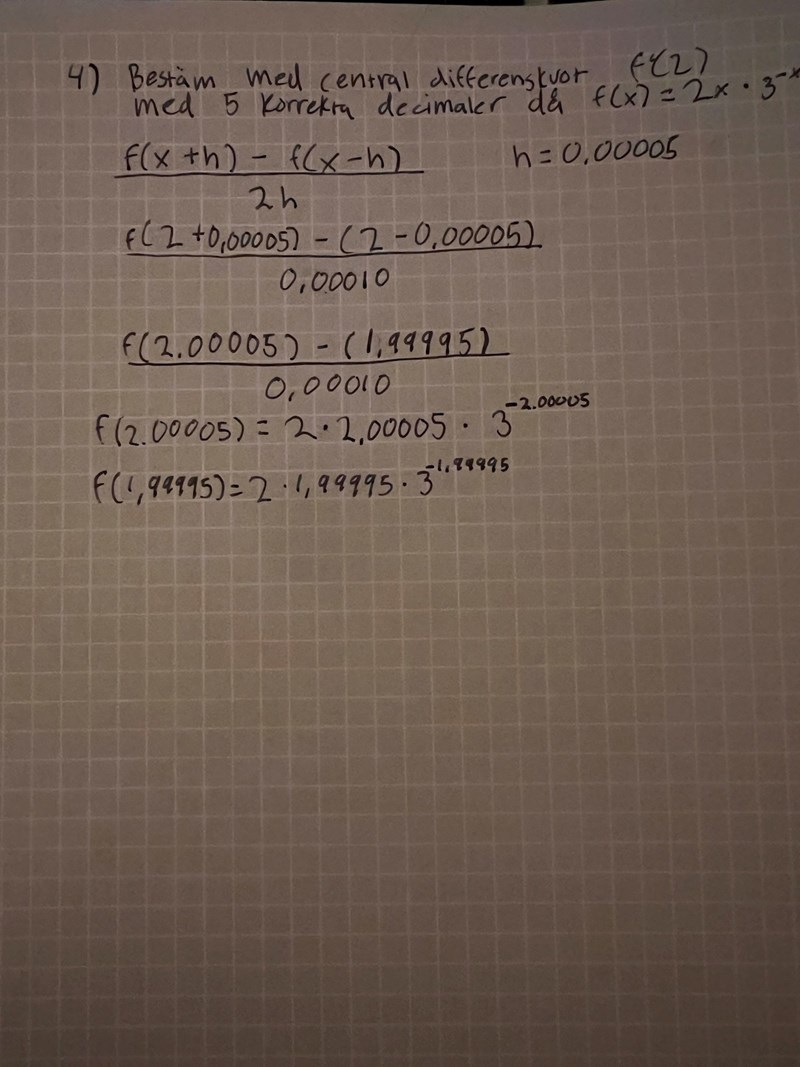 4) Bestäm med central differenskvot f'(2)
med 5 korrekta decimaler då f(x) = 2x · 3^-x
f(x+h) - f(x-h) h = 0,00005
2h
f(2+0,00005) - (2-0,00005)
0,00010
f(2.00005) - (1,99995)
0,00010
f(2.00005) = 2 · 2,00005 · 3^-2.00005
f(1,99995) = 2 · 1,99995 · 3^-1,99995